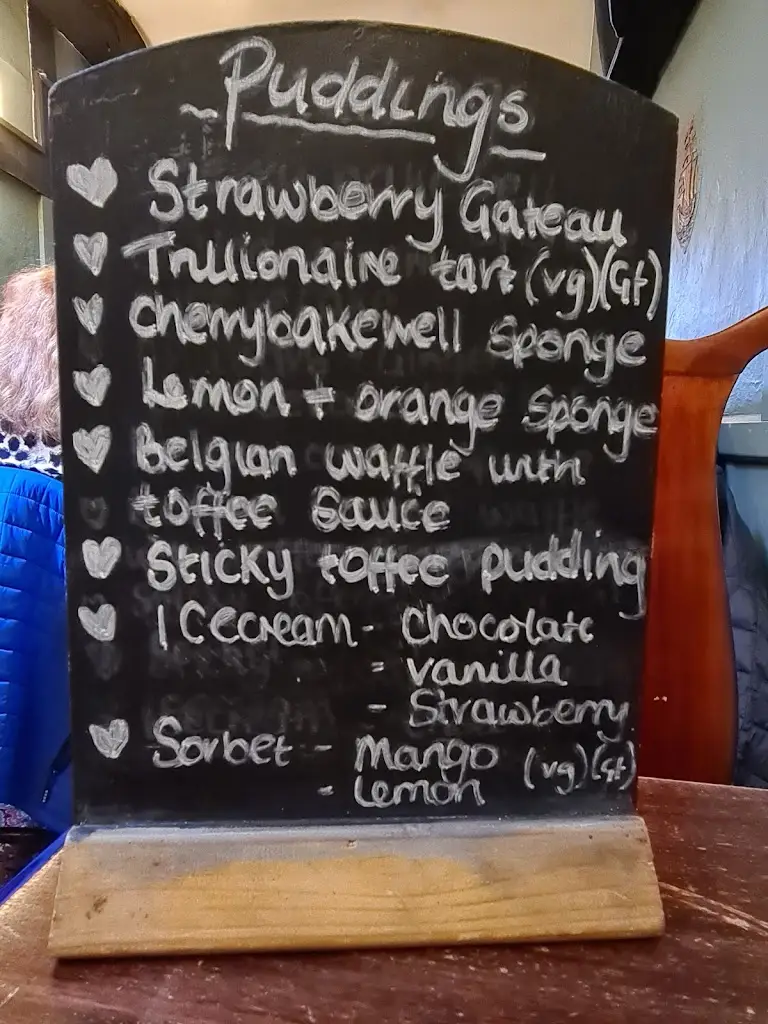 Puddings
Strawberry Gateau
Trillionaire tart (vg)(Gf)
cherrybakewell Sponge
Lemon + orange Sponge
Belgian waffle with
toffee Sauce
Sticky toffee pudding
Icecream - chocolate
- vanilla
- Strawberry
Sorbet - Mango (vg)(Gf)
- Lemon